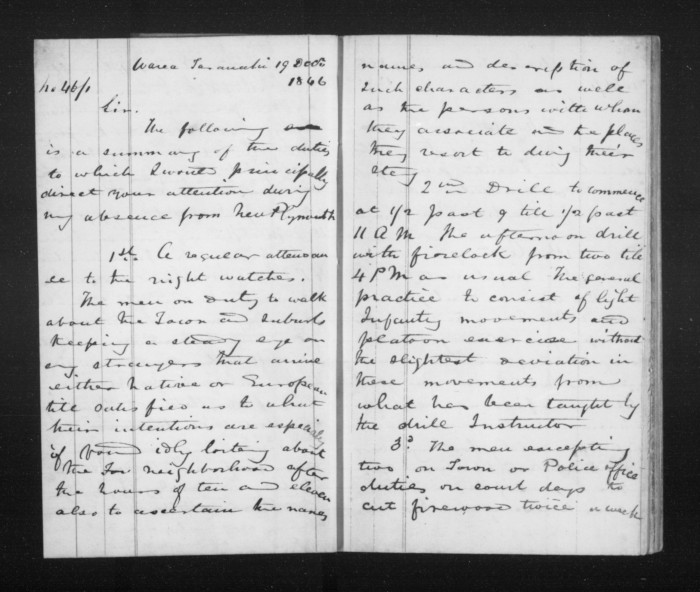 Warea Taranaki 19 Decr
1846
No 46/1
Sir.
The following
is a summary of the duties
to which I want principally
direct your attention during
my absence from New Plymouth
1st. A regular attendan
ce to the night watches.
The men on duty to walk
about the Town and suburbs
keeping a steady eye on
any strangers that arrive
either Native or European
till satisfied as to what
their intentions are especially
if found idly loiting about
the Town neighborhood after
the hours of ten and eleven
also to ascertain the names
names and description of
such characters as well
as the persons with whom
they associate and the places
they resort to diving their
stay
2nd Drill to commence
at 1/2 past 9 till 1/2 past
11 A M. The afternoon drill
with firelock from two till
4 P M as usual The general
practice to consist of light
Infantry movements and
platoon exercise without
the slightest deviation in
these movements from
what has been taught by
the drill Instructor
3d. The men excepting
two on Town or Police office
duties on court days to
cut firewood twice a week